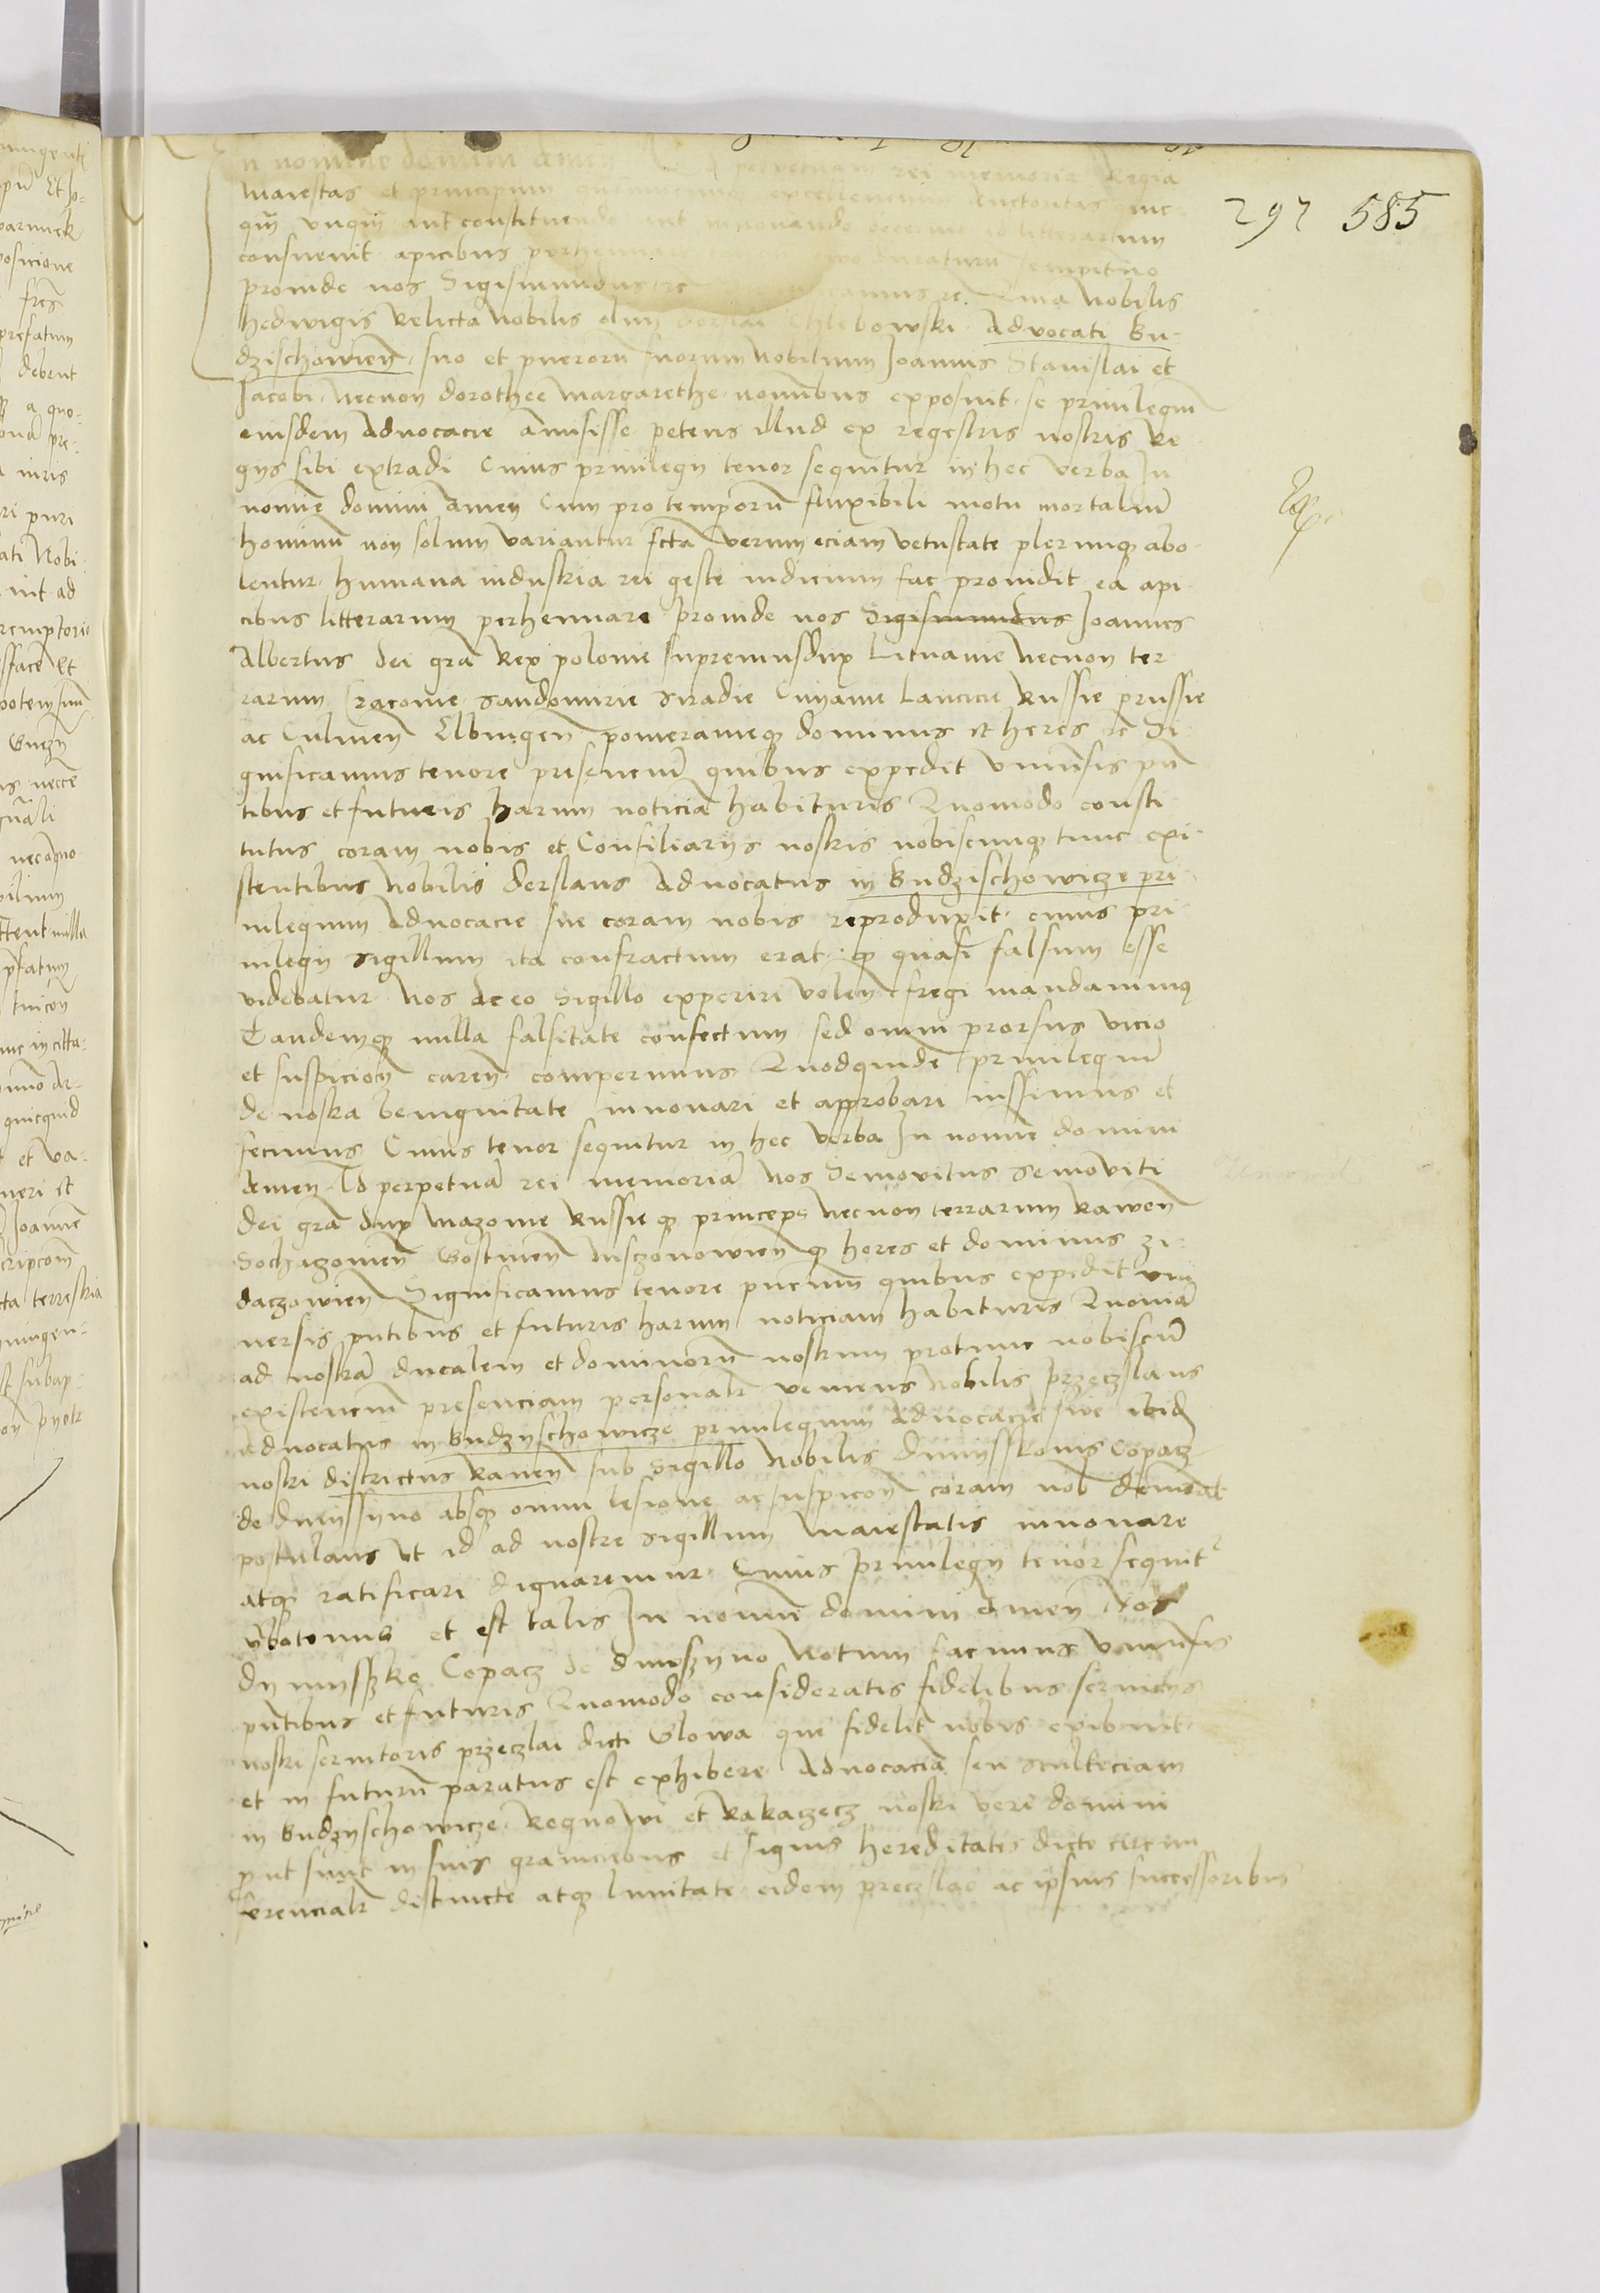 297 585
n nomine domini amen perpetuam rei memoriam Regia
Maiestas et principum excellencium Auctoritas
quam unquam aut constituendo aut innouando decernit id litterarum
consueuit apicibus sempiterno
proinde nos Sigismundus rc Quia Nobilis
hedwigis Relicta Nobilis olim Chlebowski Advocati Bu-
dzischowien suo et puerorum suorum Nobilium Joannis Stanislai et
Jacobi Necnon dorothee Margarethe nominibus exposuit se priuilegium
eiusdem Aduocacie amisisse petens illud ex regestris nostris Re
gys sibi extradi Cuius priuilegy tenor sequitur in hec verba In
nomine domini Amen Cum pro temporum fluxibili motu mortalium
hominum non solum variantur fcta verum eciam vetustate plerumque abo-
lentur humana industria rei geste indicium fac prouidit ea api-
cibus litterarum perhennare proinde nos Sigismundus Joannes
Albertus dei gra Rex polonie supremusdux Lituanie Necnon ter-
rarum Cracouie Sandomirie Siradie Cuiauie Lancicie Russie prussie
ac Culmen Elbingen pomeranieque dominus et heres rc Si-
gnificamus tenore presencium quibus expedit vniuersis pn
tibus et futuris harum noticiam habituris Quomodo consti
tutus coram nobis et Consiliariis nostris nobiscumque tunc exi-
stentibus Nobilis derslaus Aduocatus in Budzischowicze pri-
uilegium Aduocacie sue coram nobis reproduxit cuius pri-
uilegy sigillum ita confractum erat qp quasi falsum esse
videbatur Nos de eo sigillo experiri volen fregi mandauimus
Tandemque nulla falsitate confectum sed omni prorsus vicio
et suspicion caren comperimus Quodquidem priuilegium
de nostra benignitate innouari et approbari iussimus et
fecimus Cuius tenor sequitur in hec verba In nomine domini
Amen Ad perpetuam rei memoriam Nos Semouitus Semouiti
dei gra dux Mazouie Russieque princeps Necnon terrarum Rawen
Sochaczouien Gostinen Insczonowienque heres et dominus Zi-
daczowien Significamus tenore pncium quibus expedit vni
uersis pntibus et futuris harum noticiam habituris Quoniam
ad nostram ducalem et dominorum nostrum protunc nobiscum
existencium presenciam personalr veniens Nobilis przeczslaus
aduocatus in Budzyschowicze priuilegium Aduocacie sue ibid
nostri districtus Rauen sub Sigillo Nobilis Copacz
de absque omni lesione ac suspicon coram nob
postulans vt id ad nostre sigillum Maiestatis innouare
atque ratificari dignaremur Cuius priuilegy tenor sequitr
vbotenus et est talis In nomine domini amen Nos
Copacz de Notum facimus vniuersis
pntibus et futuris Quomodo consideratis fidelibus seruicys
nostri seruitoris przeczlai dicti Glowa que fidelit nobis exibuit
et in futurum paratus est exhibere Aduocaciam seu sculteciam
in Budzyschowicze Regnowi et nostri veri domini
put sunt in suis graniciebus et signis hereditates dicte circum
ferencialr distincte atque limitate eidem preczslao ac ipsius successoribus